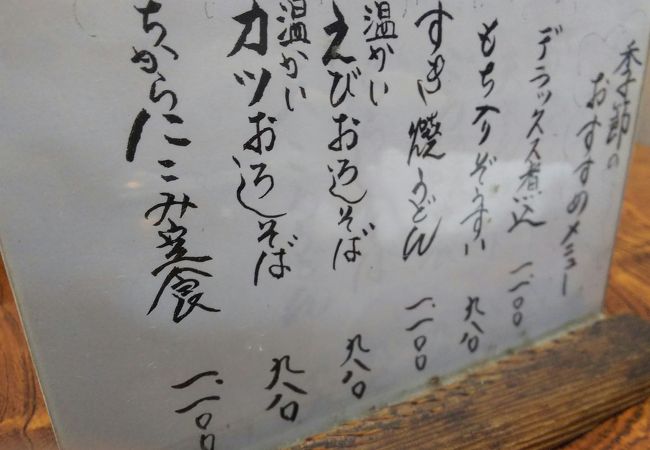 季節の
おすすめメニュー
デラックス煮込 一、一00
もち入りぞうすい 九八0
すき焼うどん 一、一00
温かい
えびおろしそば 九八0
温かい
カツおろしそば 九八0
ちからにこみ定食 一、一00